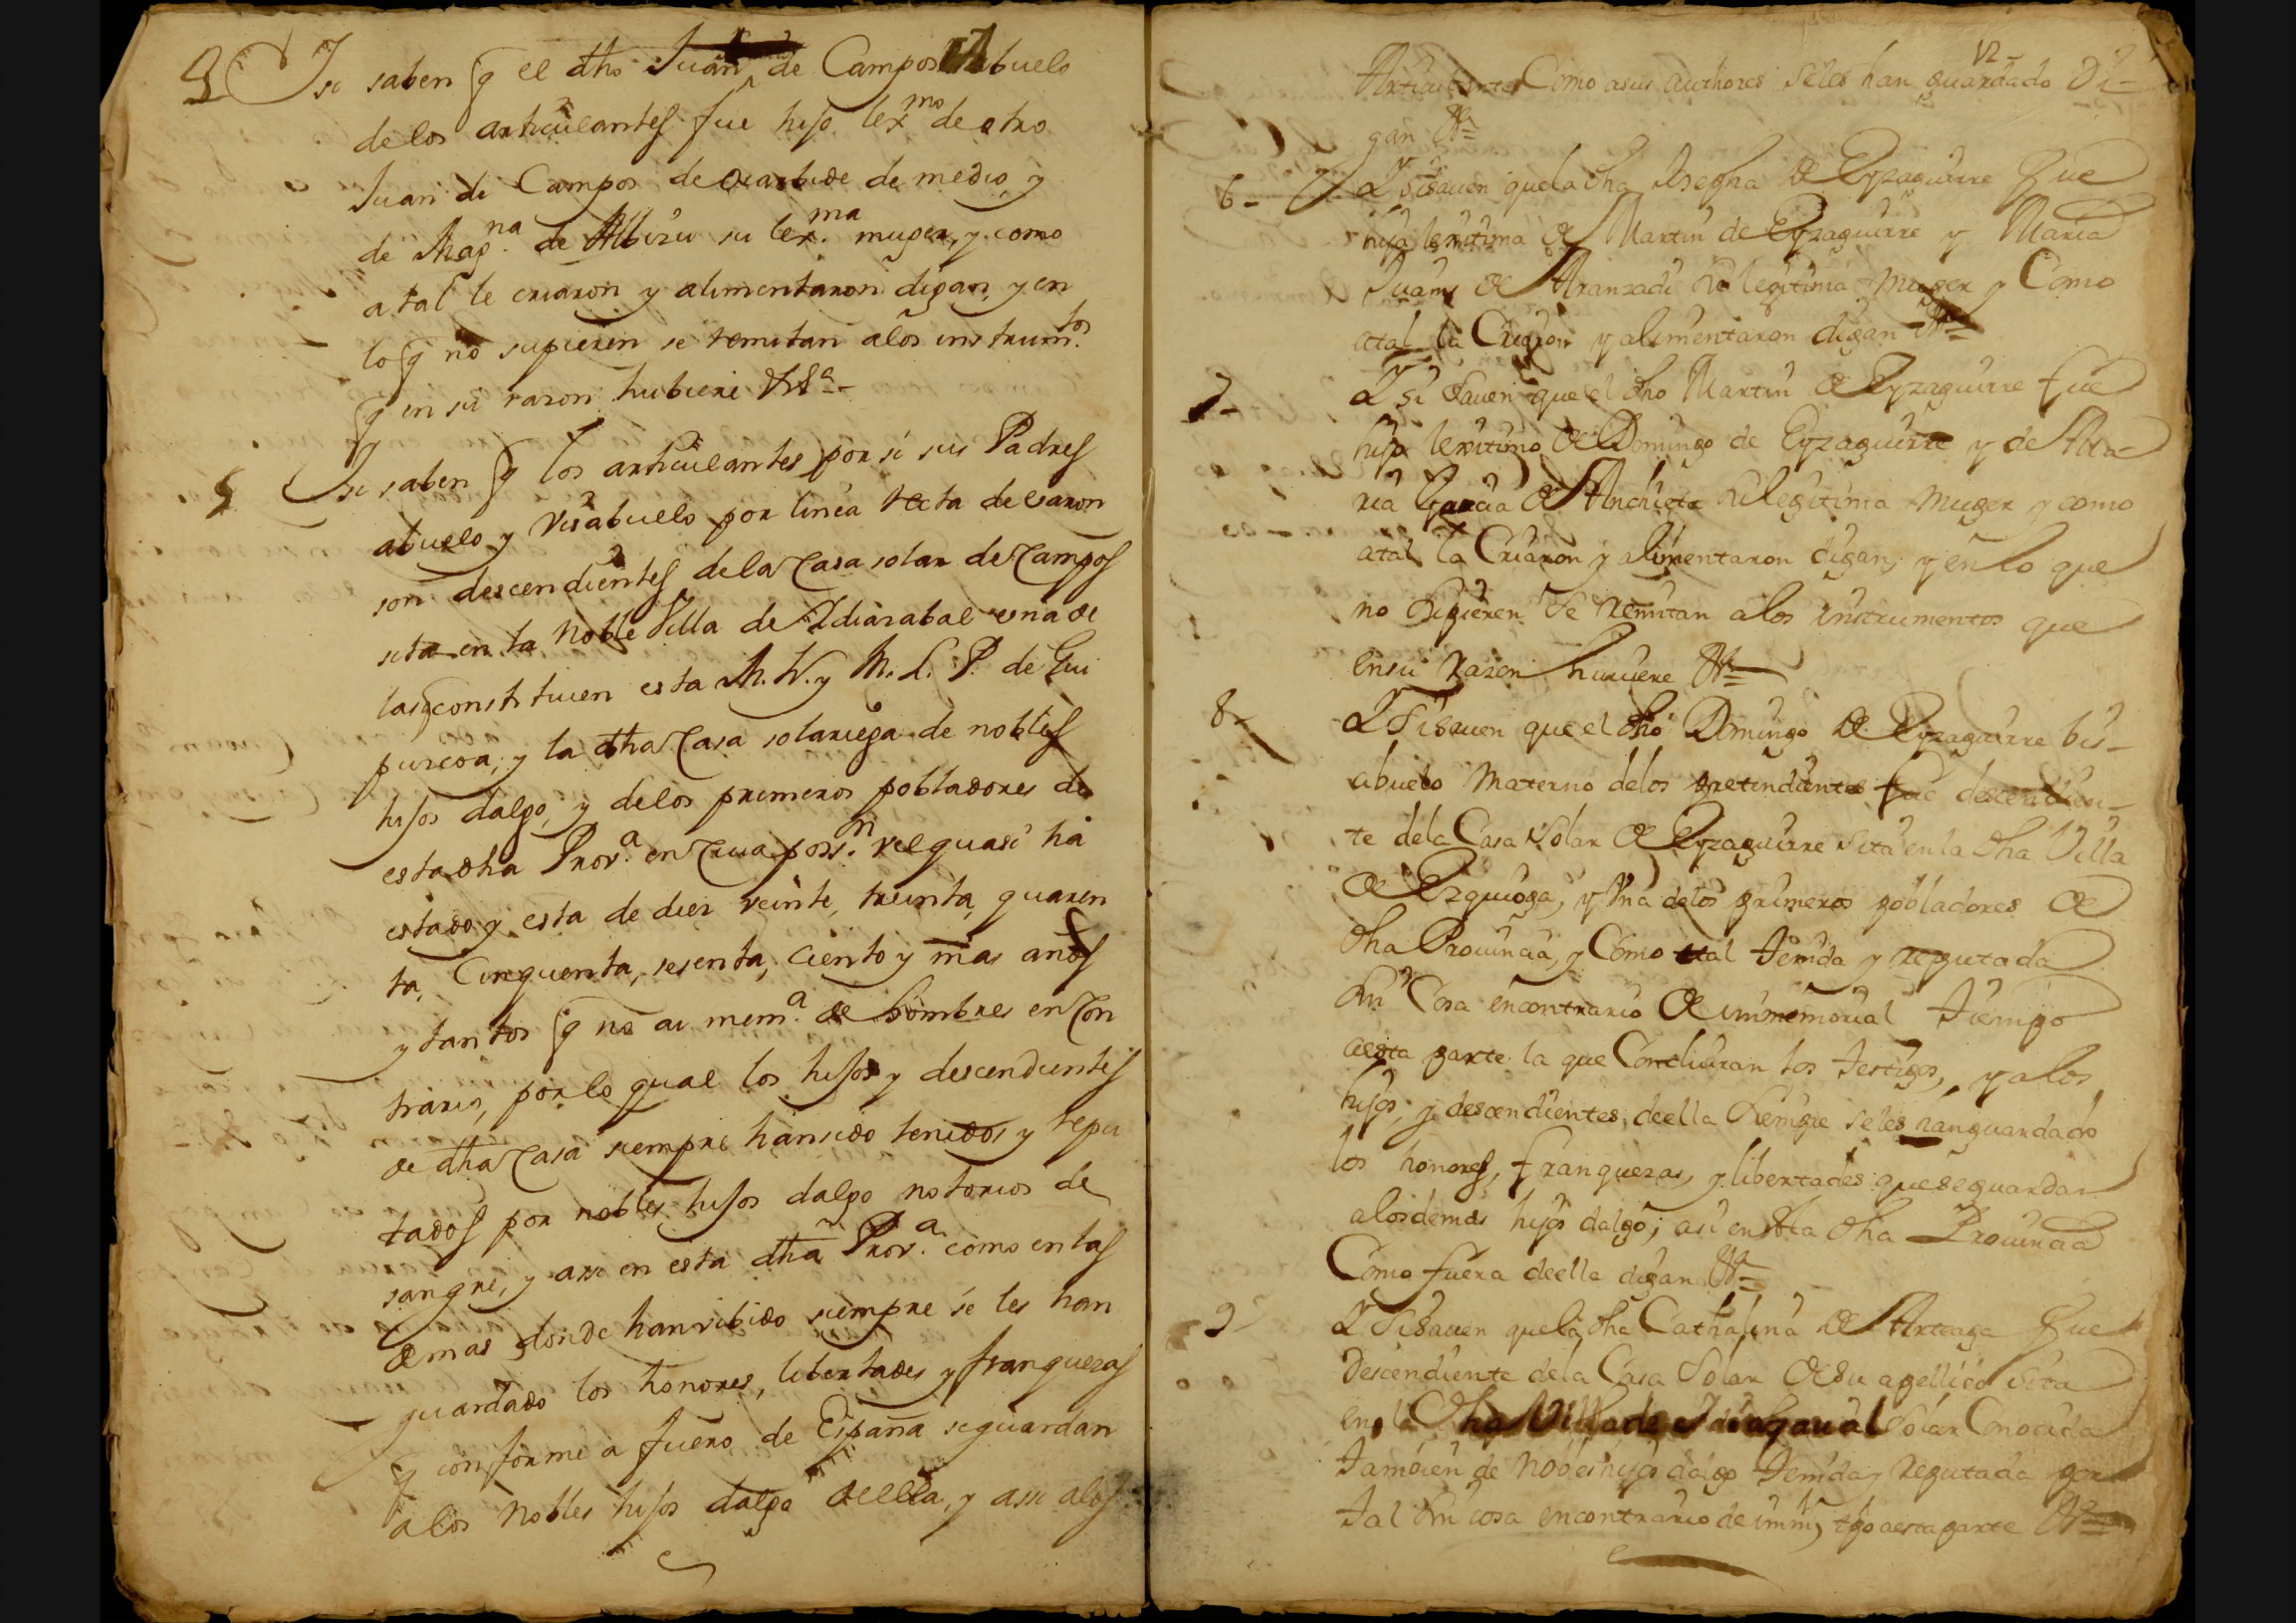 Y si saben q el dho Juan de Campos Abuelo
de los articulantes fue hijo lex.mo de otro
Juan de Campos de de medio y
de Mag.na de Albizu su lex.ma muger, y como
a tal le criaron y alimentaron digan, y en
lo q no supieren se remitan a los instrum.tos
q en su razon hubiere
5 Y si saben q los articulantes por si sus Padres
abuelo y visabuelo por linea recta de varon
son descendientes de la Casa solar de Campos
sita en la Noble Villa de Ydiazabal una de
las q constituien esta M. N. y M. L. P. de Gui
puzcoa; y la dha Casa solariega de nobles
hijos dalgo, y de los primeros pobladores de
esta dha Prov.a en cuia poss.n vel quasi ha
estado y esta de diez veinte, treinta, quaren
ta, Cinquenta, sesenta, Ciento y mas años
y tantos q no ai mem.a de hombres en con
trario, por lo qual los hijos y descendientes
de dha Casa siempre han sido tenidos y repu
tados por nobles hijos dalgo notorios de
sangre, y assi en esta dha Prov.a como en las
demas donde han vibido siempre se les han
guardado los honores, libertades y franquezas
q conforme a fuero de España se guardan
a los Nobles hijos dalgo de ella, y assi a los
12
Articulantes Como a sus authores se les han guardado Di-
gan
6- Y si sauen que la dha de Eyzaguirre fue
hija lexitima de Martin de Eyzaguirre y Maria
Juans de Aranzadi su legitima Muger y Como
a tal la Criaron y alimentaron digan
7- Y si sauen que el dho Martin de Eyzaguirre fue
hijo lexitimo de Domingo de Eyzaguirre y de Ma-
ria Garcia de Anchieta su legitima Muger y como
a tal la Criaron y alimentaron digan, y en lo que
no supieren se remitan a los instrumentos que
en su razon huuiere
8- Y si sauen que el dho Domingo de Eyzaguirre bis-
abuelo Materno de los pretendientes fue descendien-
te de la Casa Solar de Eyzaguirre sita en la dha Villa
de Ezquioga, y Una de los primeros pobladores de
dha Prouincia, y Como tal tenida y reputada
sin Cosa en contrario de immemorial tiempo
a esta parte la que Concluiran los testigos, y a los
hijos, y descendientes de ella siempre se les han guardado
los honores, franquezas, y libertades que se guardan
a los demas hijos dalgo; asi en esta dha Prouincia
Como fuera de ella digan
9- Y si sauen que la dha Cathalina de Arteaga fue
Descendiente de la Casa Solar de su apellido sita
en la dha Villa de Solar Conocida
tambien de Nobles hijos dalgo tenida y reputada por
tal sin cosa en contrario de imm, tpo a esta parte